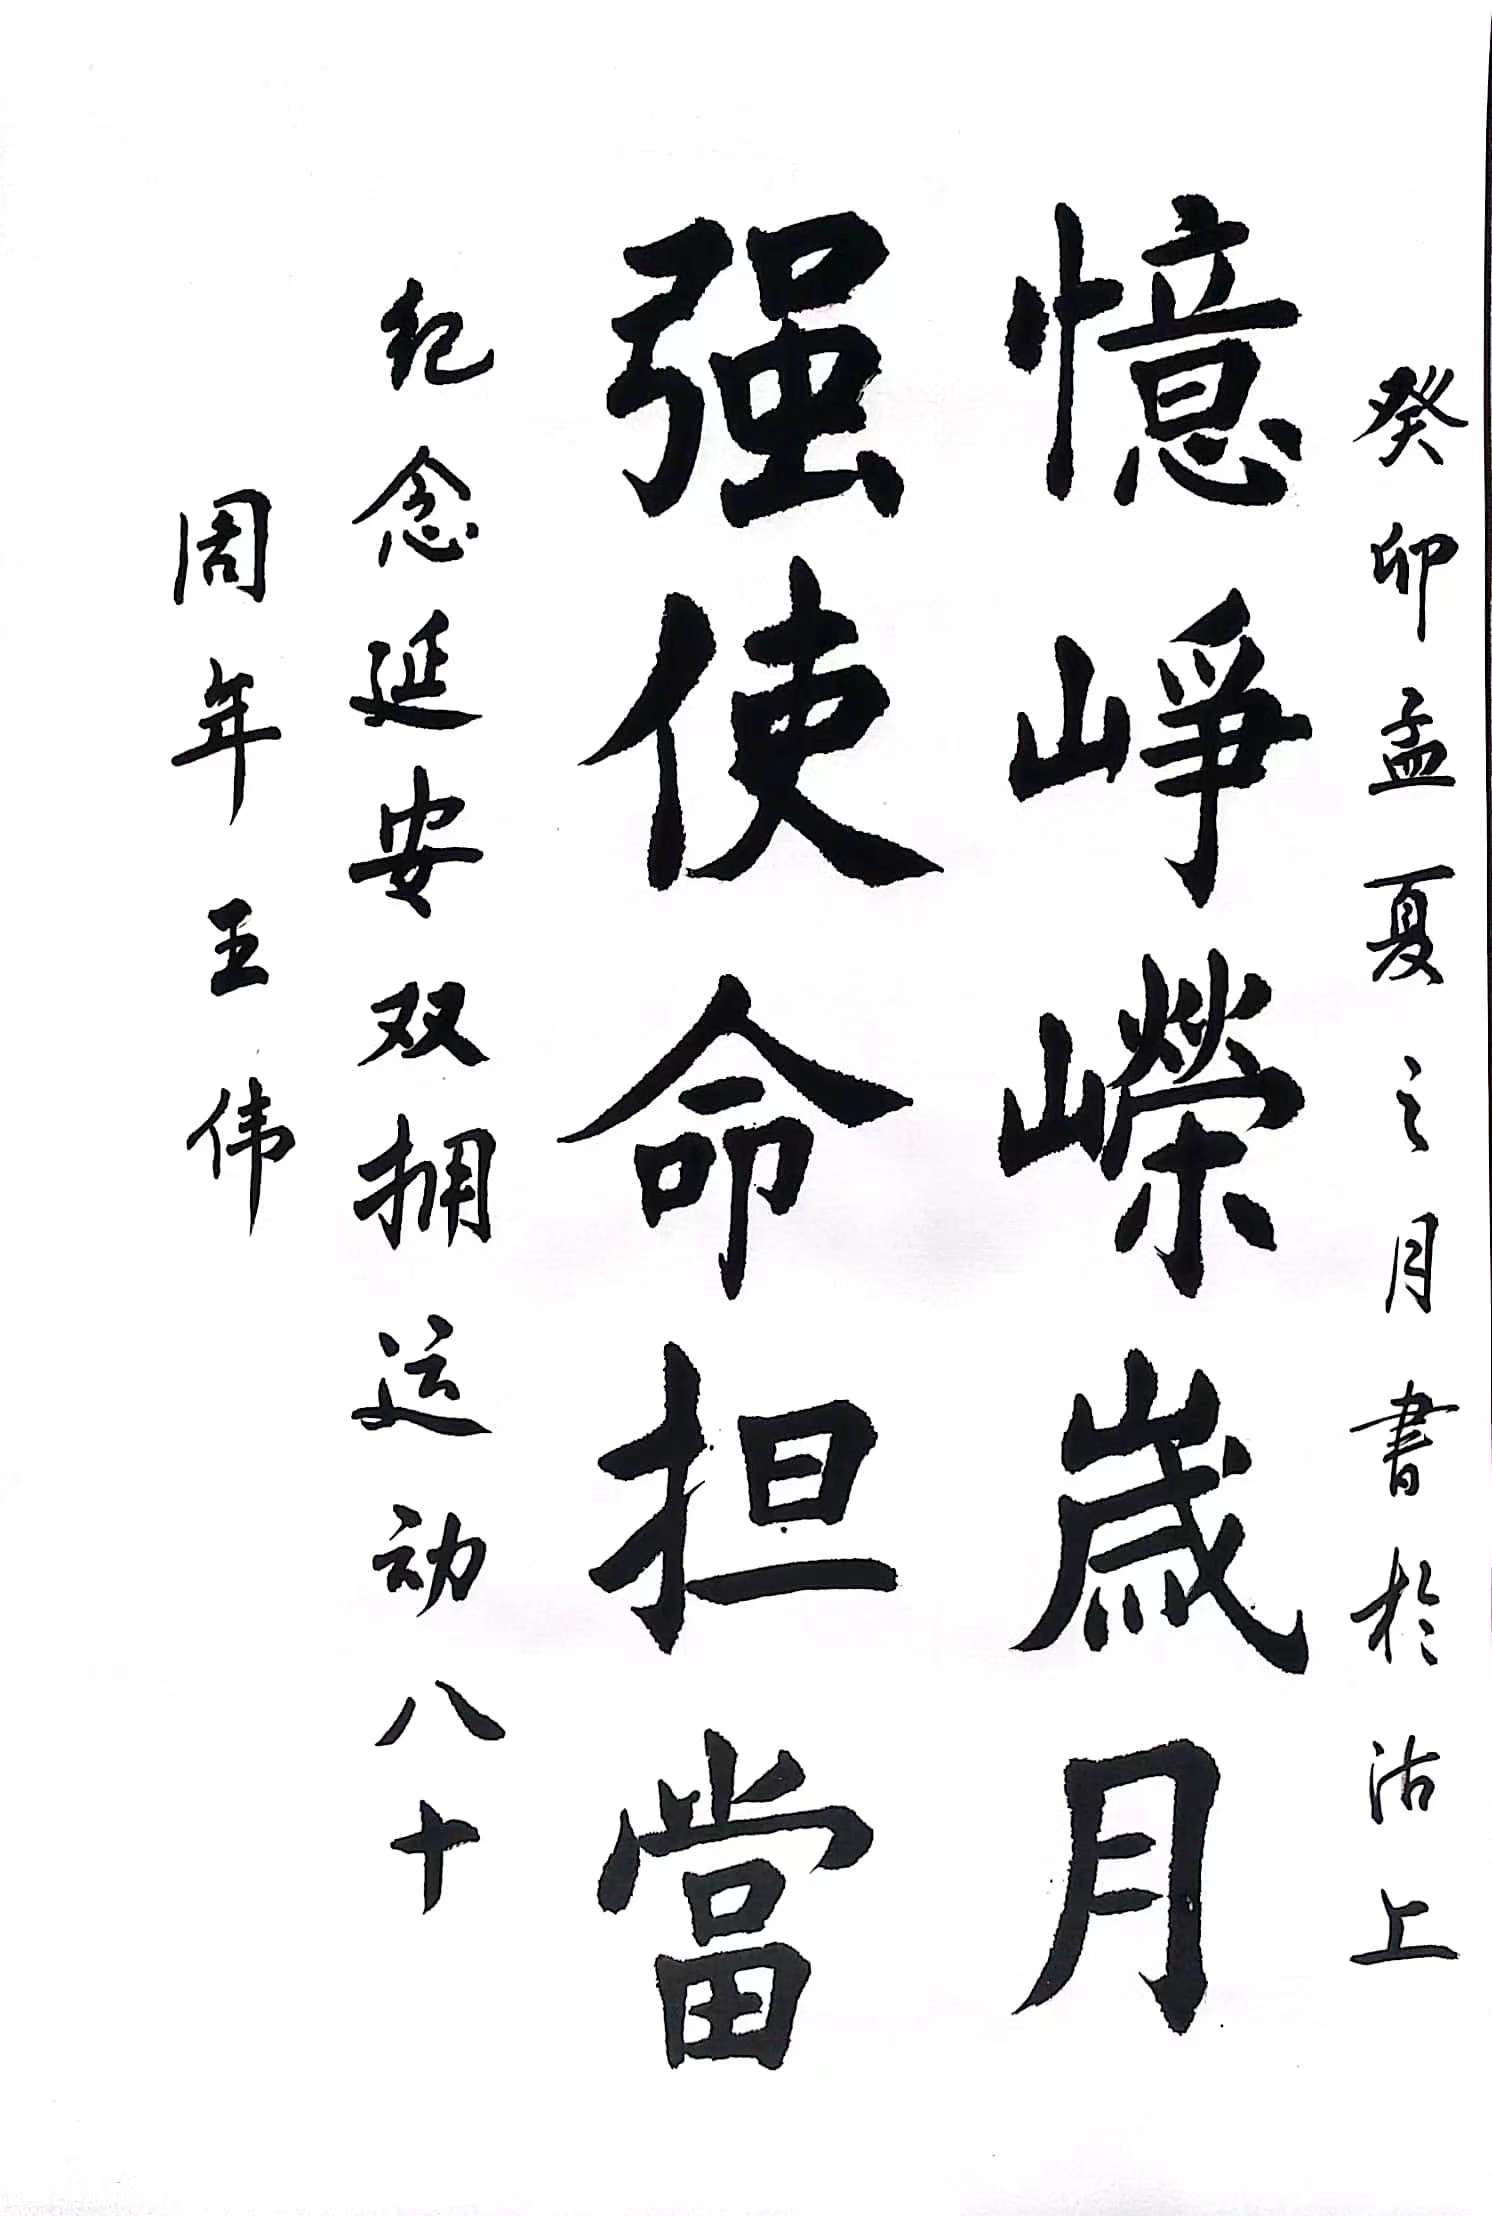 癸卯孟夏之月書於沽上
憶崢嶸歲月
强使命担當
纪念延安双拥运动八十
周年王伟